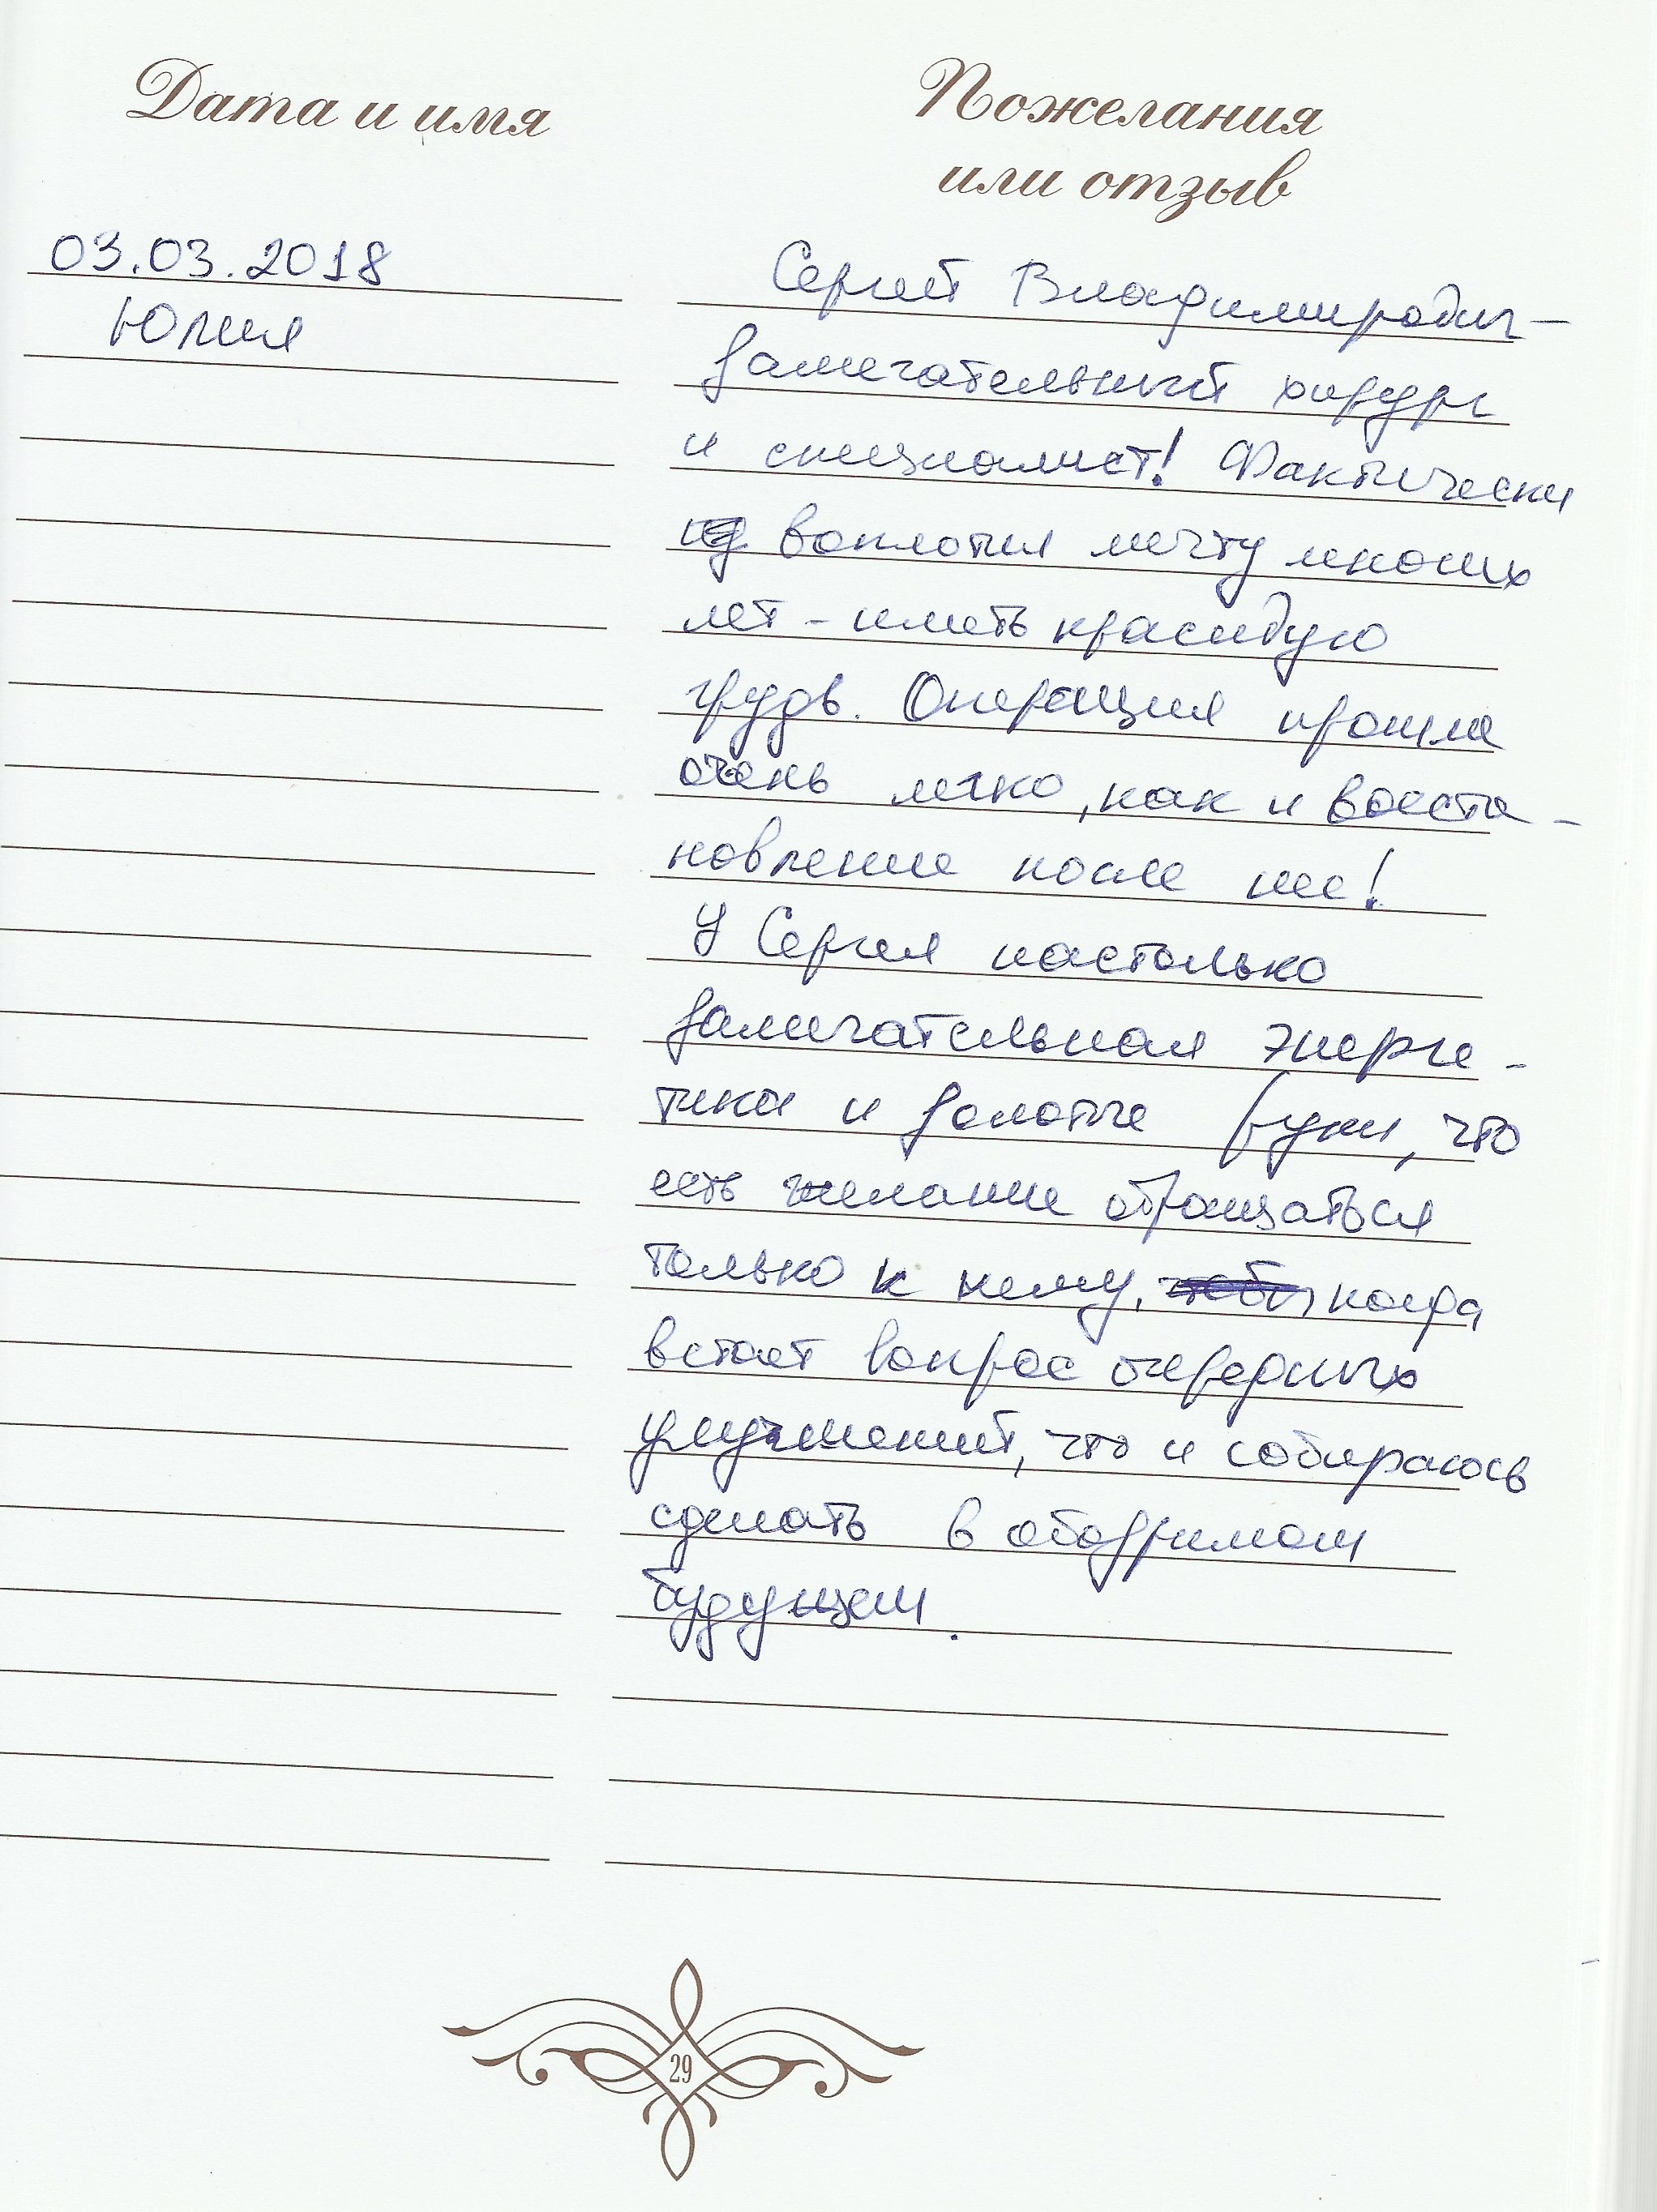 Дата и имя
Пожелания
или отзыв
03.03.2018
Юлия
Сергей Владимирович –
замечательный хирург
и специалист! Фактически
воплотил мечту многих
лет – иметь красивую
грудь. Операция прошла
очень легко, как и восста-
новление после нее!
У Сергея настолько
замечательная энерге-
тика и золотые руки, что
есть желание обращаться
только к нему, когда
встает вопрос очередных
улучшений, что и собираюсь
сделать в обозримом
будущем.
29